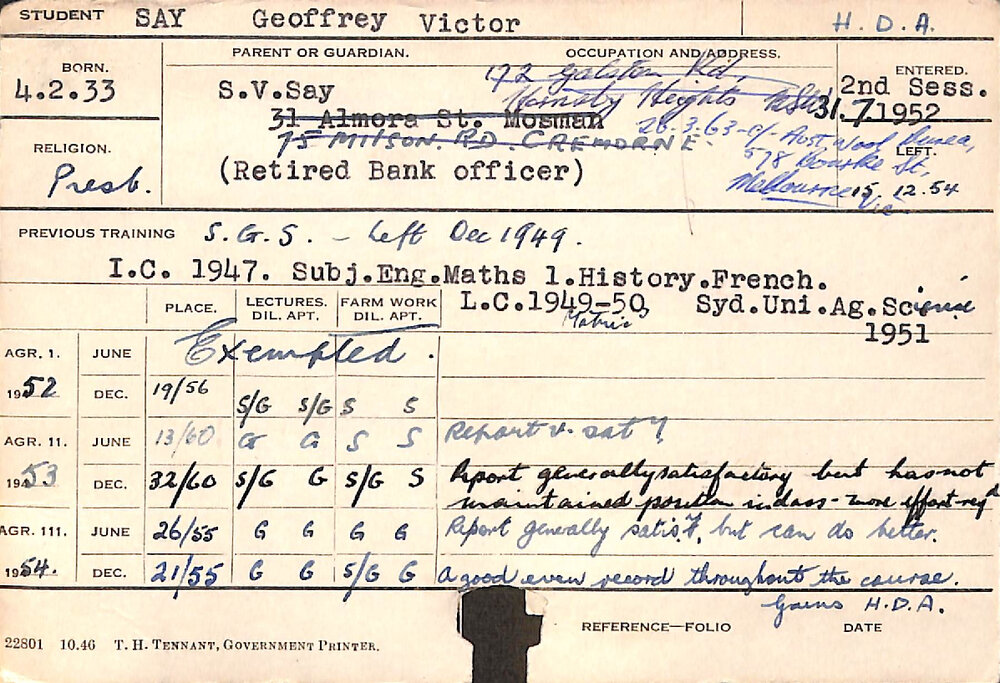 STUDENT SAY Geoffrey Victor H.D.A.
PARENT OR GUARDIAN. OCCUPATION AND ADDRESS.
BORN. ENTERED.
4.2.33 S.V.Say 172 Galston Rd, 2nd Sess.
Hornsby Heights 31.7.1952
31 Almora St. Mosman
75 MILSON. RD. CREMORNE. 26.3.63 - c/- Aust. Wool Bureau,
RELIGION. 578 Bourke St, LEFT.
Presb. (Retired Bank officer) Melbourne Vic 15.12.54
PREVIOUS TRAINING S.G.S. - Left Dec 1949.
I.C. 1947. Subj.Eng.Maths 1.History.French.
L.C.1949-50 Matric Syd.Uni.Ag.Science
1951
PLACE. LECTURES. DIL. APT. FARM WORK DIL. APT.
AGR. 1. JUNE Exempted.
1952 DEC. 19/56 S/G S/G S S
AGR. 11. JUNE 13/60 G G S S Report v. sat'y.
1953 DEC. 32/60 S/G G S/G S Report generally satisfactory but has not
maintained position in class - more effort req'd
AGR. 111. JUNE 26/55 G G G G Report generally satis'f. but can do better.
1954. DEC. 21/55 G G S/G G A good even record throughout the course.
Gains H.D.A.
REFERENCE—FOLIO DATE
22801 10.46 T. H. TENNANT, GOVERNMENT PRINTER.